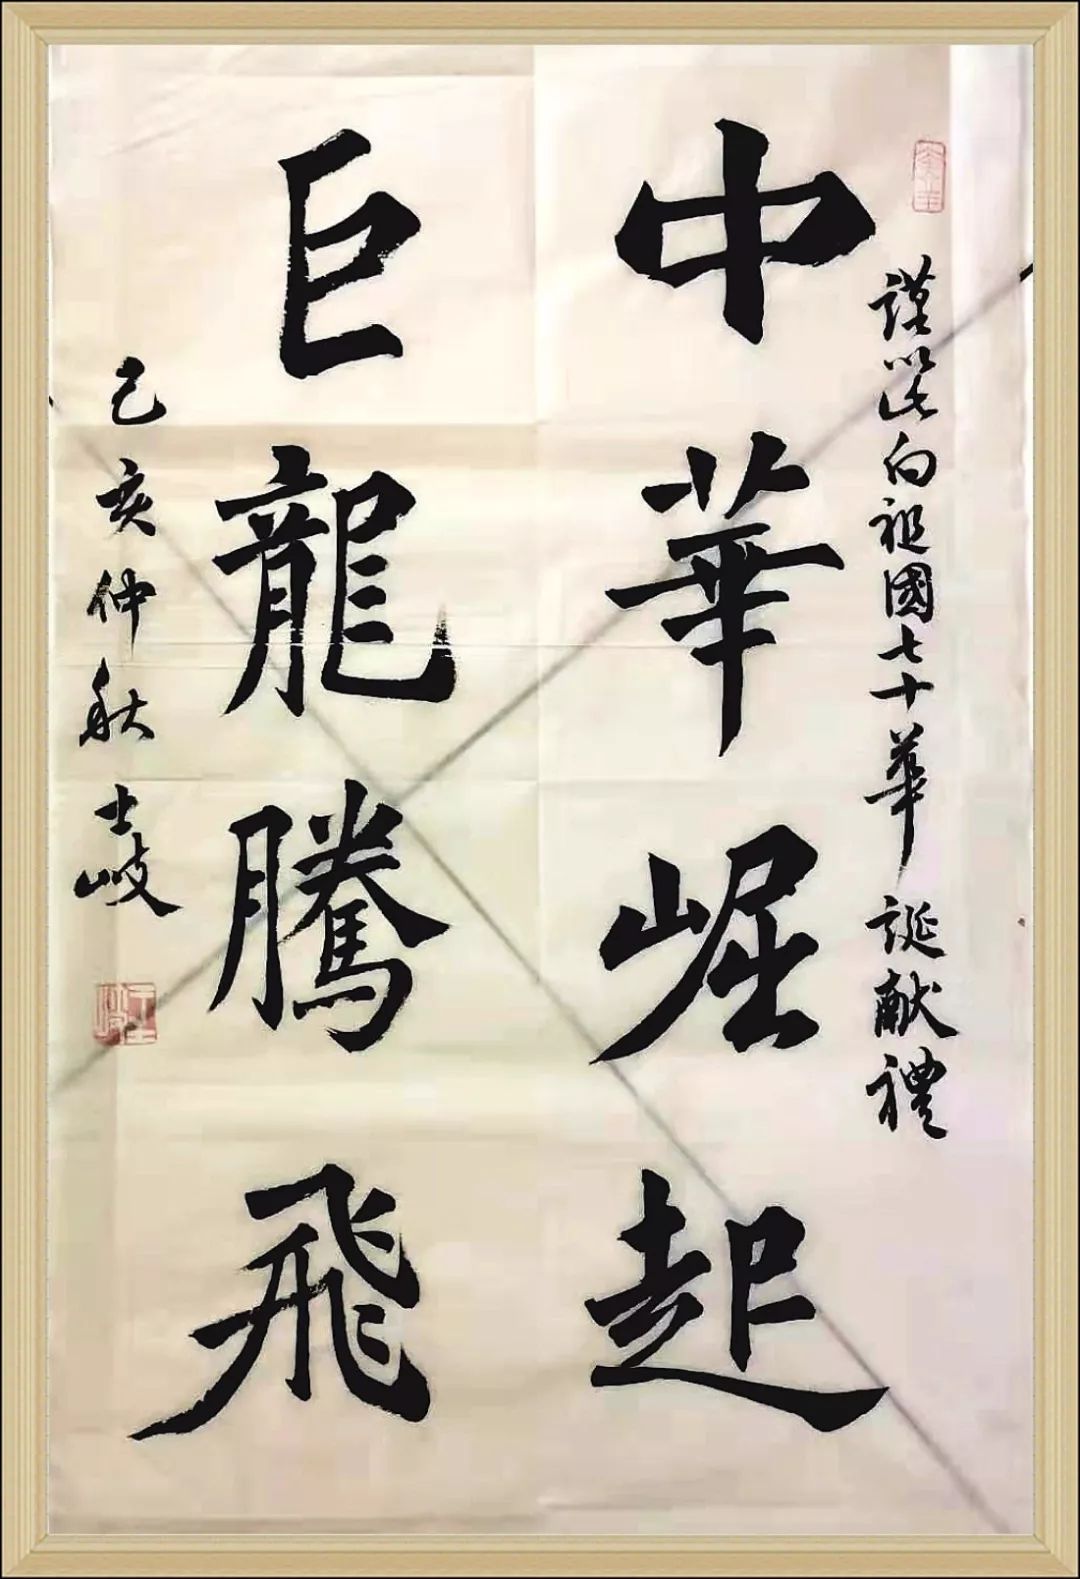 謹以此向祖國七十華誕献禮
中華崛起
巨龍騰飛
己亥仲秋士岐